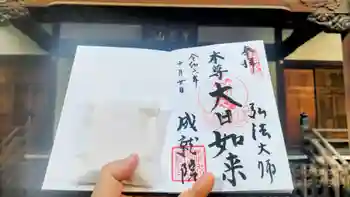 奉拝
弘法大師
本尊 大日如来
成就院
令和六年
十月廿日